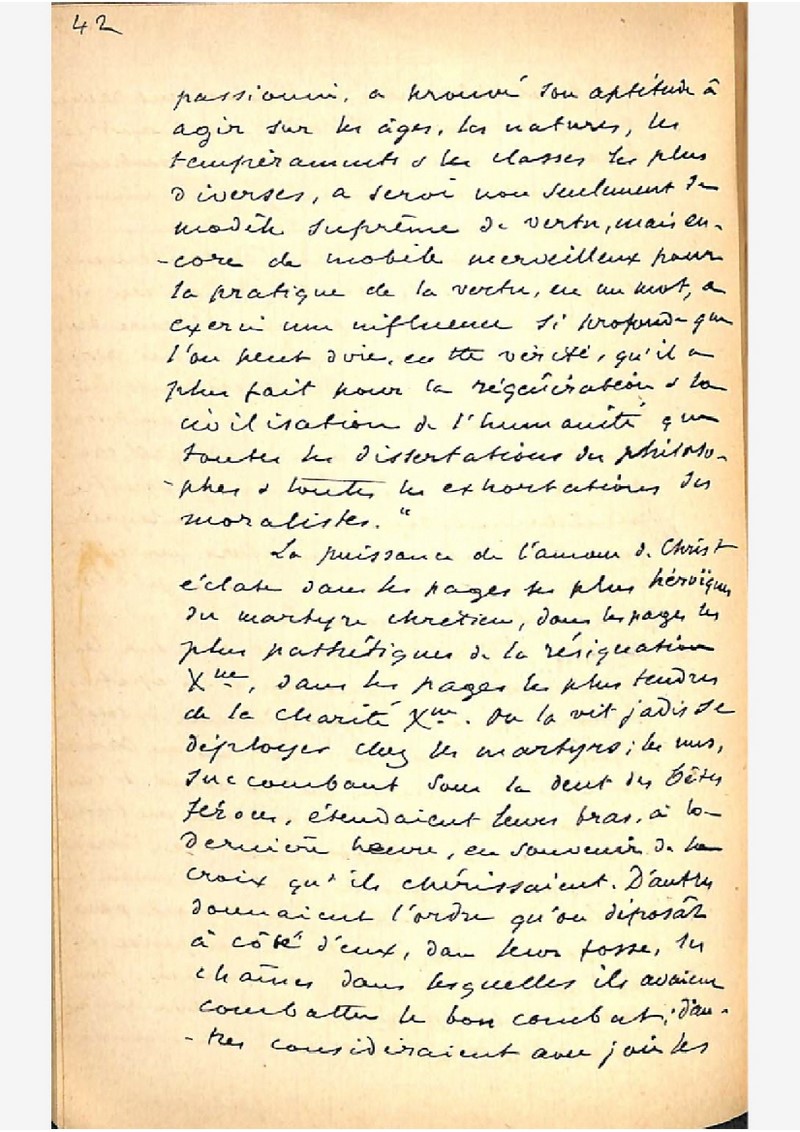 42
passionné, a prouvé son aptitude à
agir sur les âges, les natures, les
tempéraments & les classes les plus
diverses, a servi non seulement de
modèle suprême de vertu, mais en-
-core de mobile merveilleux pour
la pratique de la vertu, en un mot, a
exercé une influence si profonde que
l'on peut dire, en tte vérité, qu'il a
plus fait pour la régénération & la
civilisation de l'humanité que
toutes les dissertations des philoso-
-phes & toutes les exhortations des
moralistes."
La puissance de l'amour de Christ
éclate dans les pages les plus héroïques
du martyre chrétien, dans les pages les
plus pathétiques de la résignation
Xne, dans les pages les plus tendres
de la charité Xne. On la vit jadis se
déployer chez les martyrs; les uns,
succombant sous la dent des bêtes
féroces, étendaient leurs bras, à la
dernière heure, en souvenir de la
croix qu'ils chérissaient. D'autres
donnaient l'ordre qu'on déposât
à côté d'eux, dans leur fosse, les
chaînes dans lesquelles ils avaient
combattu le bon combat; d'au-
-tres considéraient avec joie les